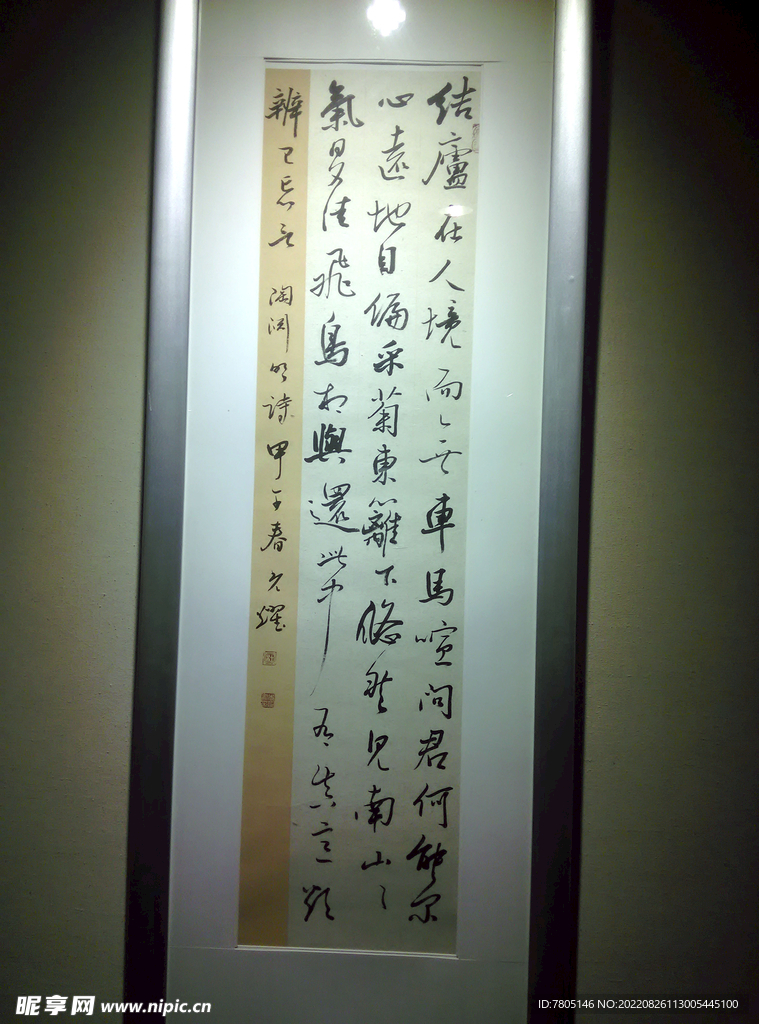 結廬在人境而無車馬喧問君何能尔
心遠地自偏采菊東籬下悠然見南山々
氣日夕佳飛鳥相與還此中有真意欲
辨已忘言 陶渊明詩 甲午春 燿
昵享网 www.nipic.cn
ID:7805146 NO:20220826113005445100